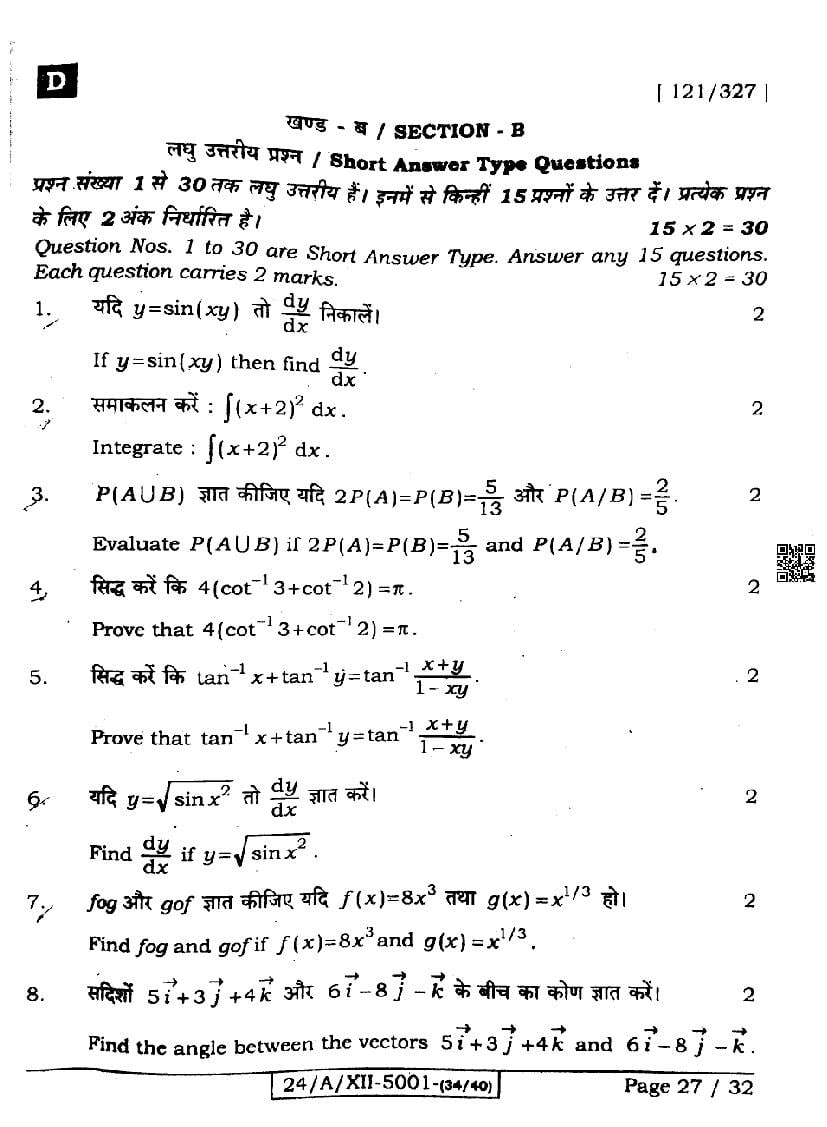 D
[ 121/327 ]
खण्ड - ब / SECTION - B
लघु उत्तरीय प्रश्न / Short Answer Type Questions
प्रश्न संख्या 1 से 30 तक लघु उत्तरीय हैं। इनमें से किन्हीं 15 प्रश्नों के उत्तर दें। प्रत्येक प्रश्न
के लिए 2 अंक निर्धारित है। 15 × 2 = 30
Question Nos. 1 to 30 are Short Answer Type. Answer any 15 questions.
Each question carries 2 marks. 15 × 2 = 30
1. यदि y=sin(xy) तो dy/dx निकालें। 2
If y=sin(xy) then find dy/dx.
2. समाकलन करें : ∫(x+2)² dx. 2
Integrate : ∫(x+2)² dx.
3. P(A∪B) ज्ञात कीजिए यदि 2P(A)=P(B)=5/13 और P(A/B)=2/5. 2
Evaluate P(A∪B) if 2P(A)=P(B)=5/13 and P(A/B)=2/5.
4. सिद्ध करें कि 4(cot⁻¹ 3+cot⁻¹ 2)=π. 2
Prove that 4(cot⁻¹ 3+cot⁻¹ 2)=π.
5. सिद्ध करें कि tan⁻¹ x+tan⁻¹ y=tan⁻¹ (x+y)/(1-xy). 2
Prove that tan⁻¹ x+tan⁻¹ y=tan⁻¹ (x+y)/(1-xy).
6. यदि y=√(sin x²) तो dy/dx ज्ञात करें। 2
Find dy/dx if y=√(sin x²).
7. fog और gof ज्ञात कीजिए यदि f(x)=8x³ तथा g(x)=x^1/3 हो। 2
Find fog and gof if f(x)=8x³ and g(x)=x^1/3.
8. सदिशों 5i⃗+3j⃗+4k⃗ और 6i⃗-8j⃗-k⃗ के बीच का कोण ज्ञात करें। 2
Find the angle between the vectors 5i⃗+3j⃗+4k⃗ and 6i⃗-8j⃗-k⃗.
24/A/XII-5001-(34/40)
Page 27 / 32